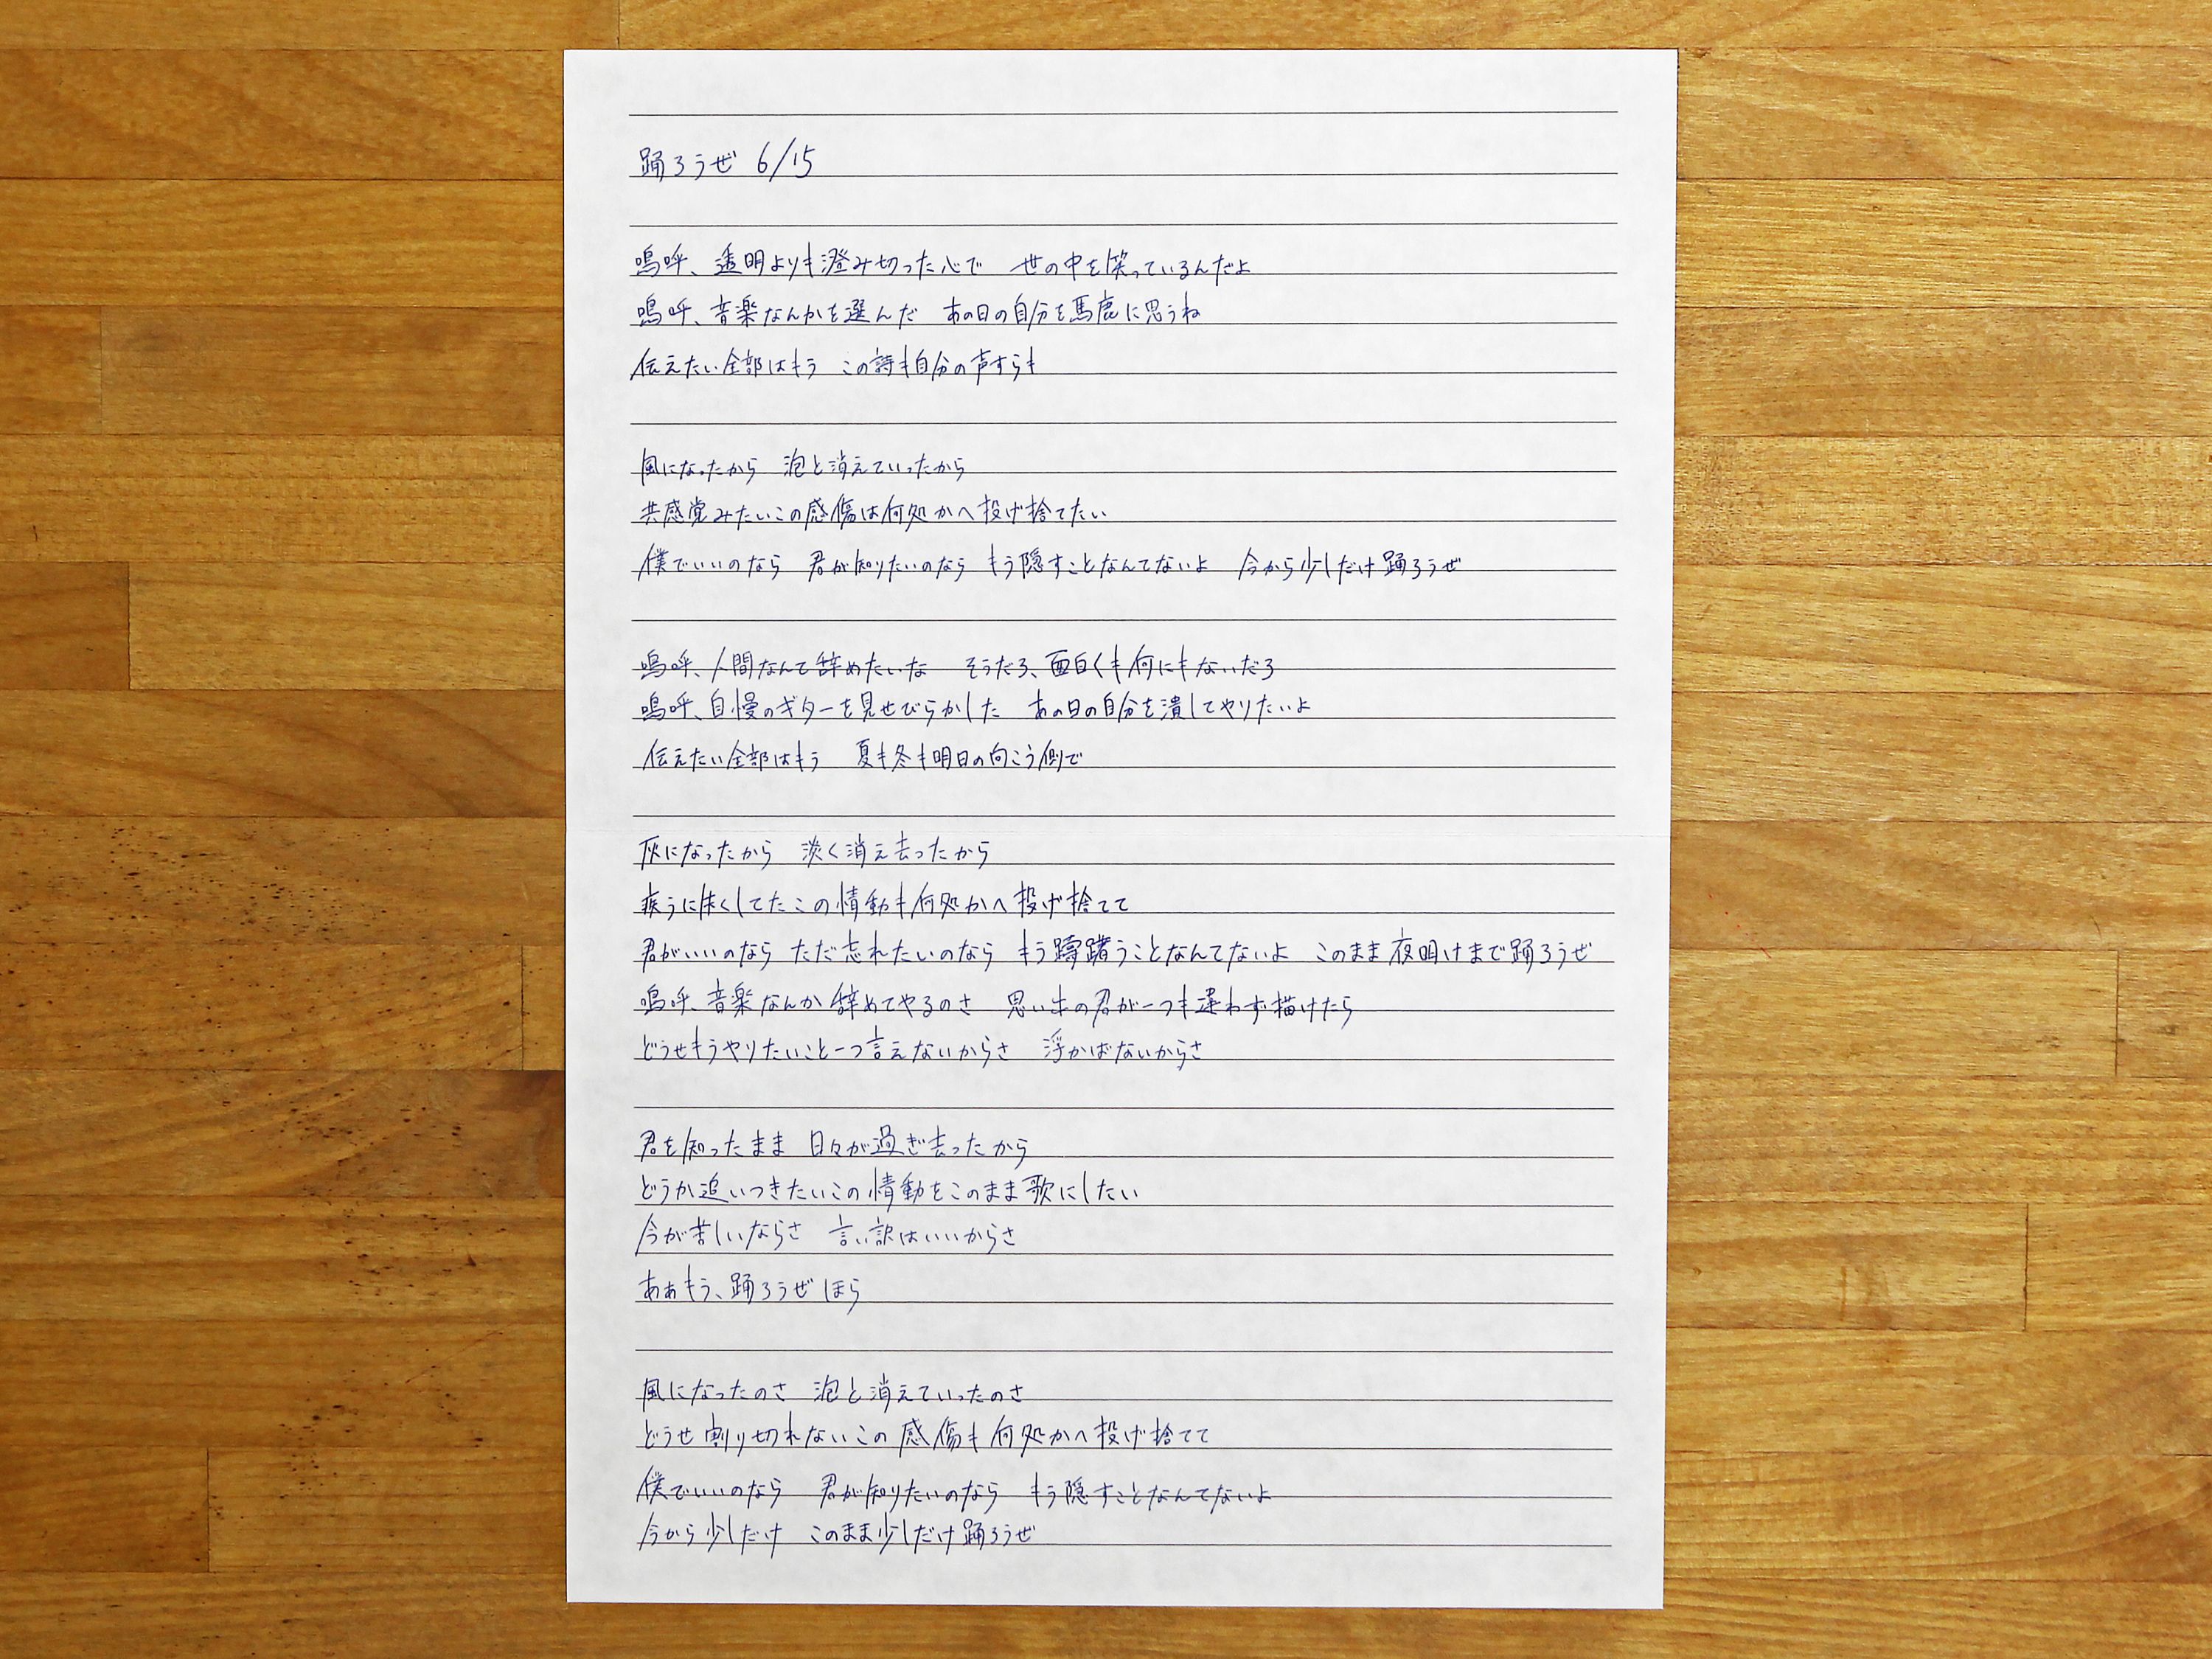 踊ろうぜ 6/15
嗚呼、透明よりも澄み切った心で　世の中を笑っているんだよ
嗚呼、音楽なんかを選んだ　あの日の自分を馬鹿に思うね
伝えたい全部はもう　この詩も自分の声すらも
風になったから　泡と消えていったから
共感覚みたいこの感傷は何処かへ投げ捨てたい
僕でいいのなら　君が知りたいのなら　もう隠すことなんてないよ　今から少しだけ踊ろうぜ
嗚呼、人間なんて辞めたいな　そうだろ、面白くも何にもないだろ
嗚呼、自慢のギターを見せびらかした　あの日の自分を潰してやりたいよ
伝えたい全部はもう　夏も冬も明日の向こう側で
灰になったから　淡く消え去ったから
疾うに失くしてたこの情動も何処かへ投げ捨てて
君がいいのなら　ただ忘れたいのなら　もう躊躇うことなんてないよ　このまま夜明けまで踊ろうぜ
嗚呼、音楽なんか辞めてやるのさ　思い出の君が一つも違わず描けたら
どうせもうやりたいこと一つ言えないからさ　浮かばないからさ
君を知ったまま　日々が過ぎ去ったから
どうか追いつきたいこの情動をこのまま歌にしたい
今が苦しいならさ　言い訳はいいからさ
あぁもう、踊ろうぜ ほら
風になったのさ　泡と消えていったのさ
どうせ割り切れないこの感傷も何処かへ投げ捨てて
僕でいいのなら　君が知りたいのなら　もう隠すことなんてないよ
今から少しだけ　このまま少しだけ踊ろうぜ